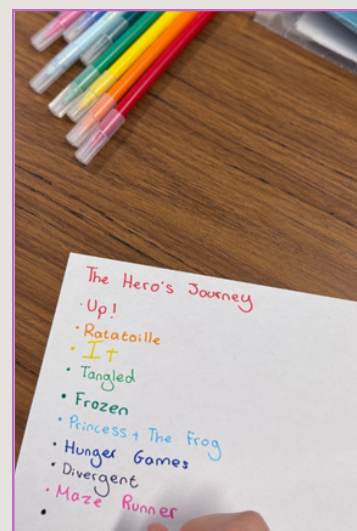 The Hero's Journey
· Up!
· Ratatoille
· It
· Tangled
· Frozen
· Princess + The Frog
· Hunger Games
· Divergent
· Maze Runner
·